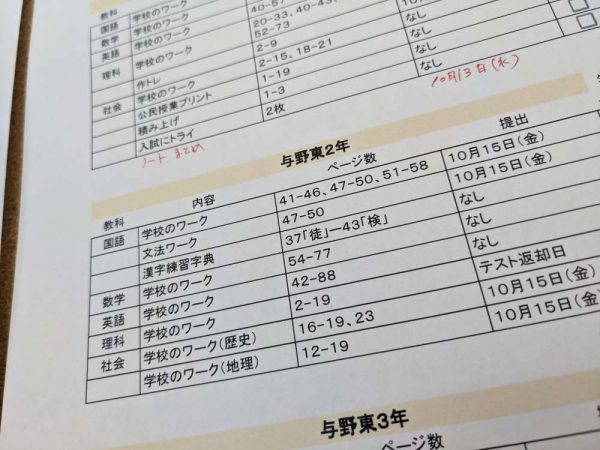 教科
国語 学校のワーク 40-57
数学 学校のワーク 20-33、40-43、
52-73 なし
英語 学校のワーク 2-9 なし
理科 学校のワーク 2-15、18-21 なし
作トレ 1-19 なし
社会 学校のワーク 1-3
公民授業プリント 2枚
積み上げ
入試にトライ
10月13日(水)
ノートまとめ
与野東2年
教科 内容 ページ数 提出
国語 学校のワーク 41-46、47-50、51-58 10月15日(金)
文法ワーク 47-50 10月15日(金)
漢字練習字典 37「徒」ー43「検」 なし
数学 学校のワーク 54-77 なし
英語 学校のワーク 42-88 なし
理科 学校のワーク 2-19 テスト返却日
社会 学校のワーク(歴史) 16-19、23 10月15日(金)
学校のワーク(地理) 12-19 10月15日(金)
与野東3年
ページ数